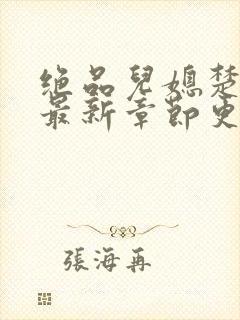 绝品兒媳楚
最新章節史
張海再